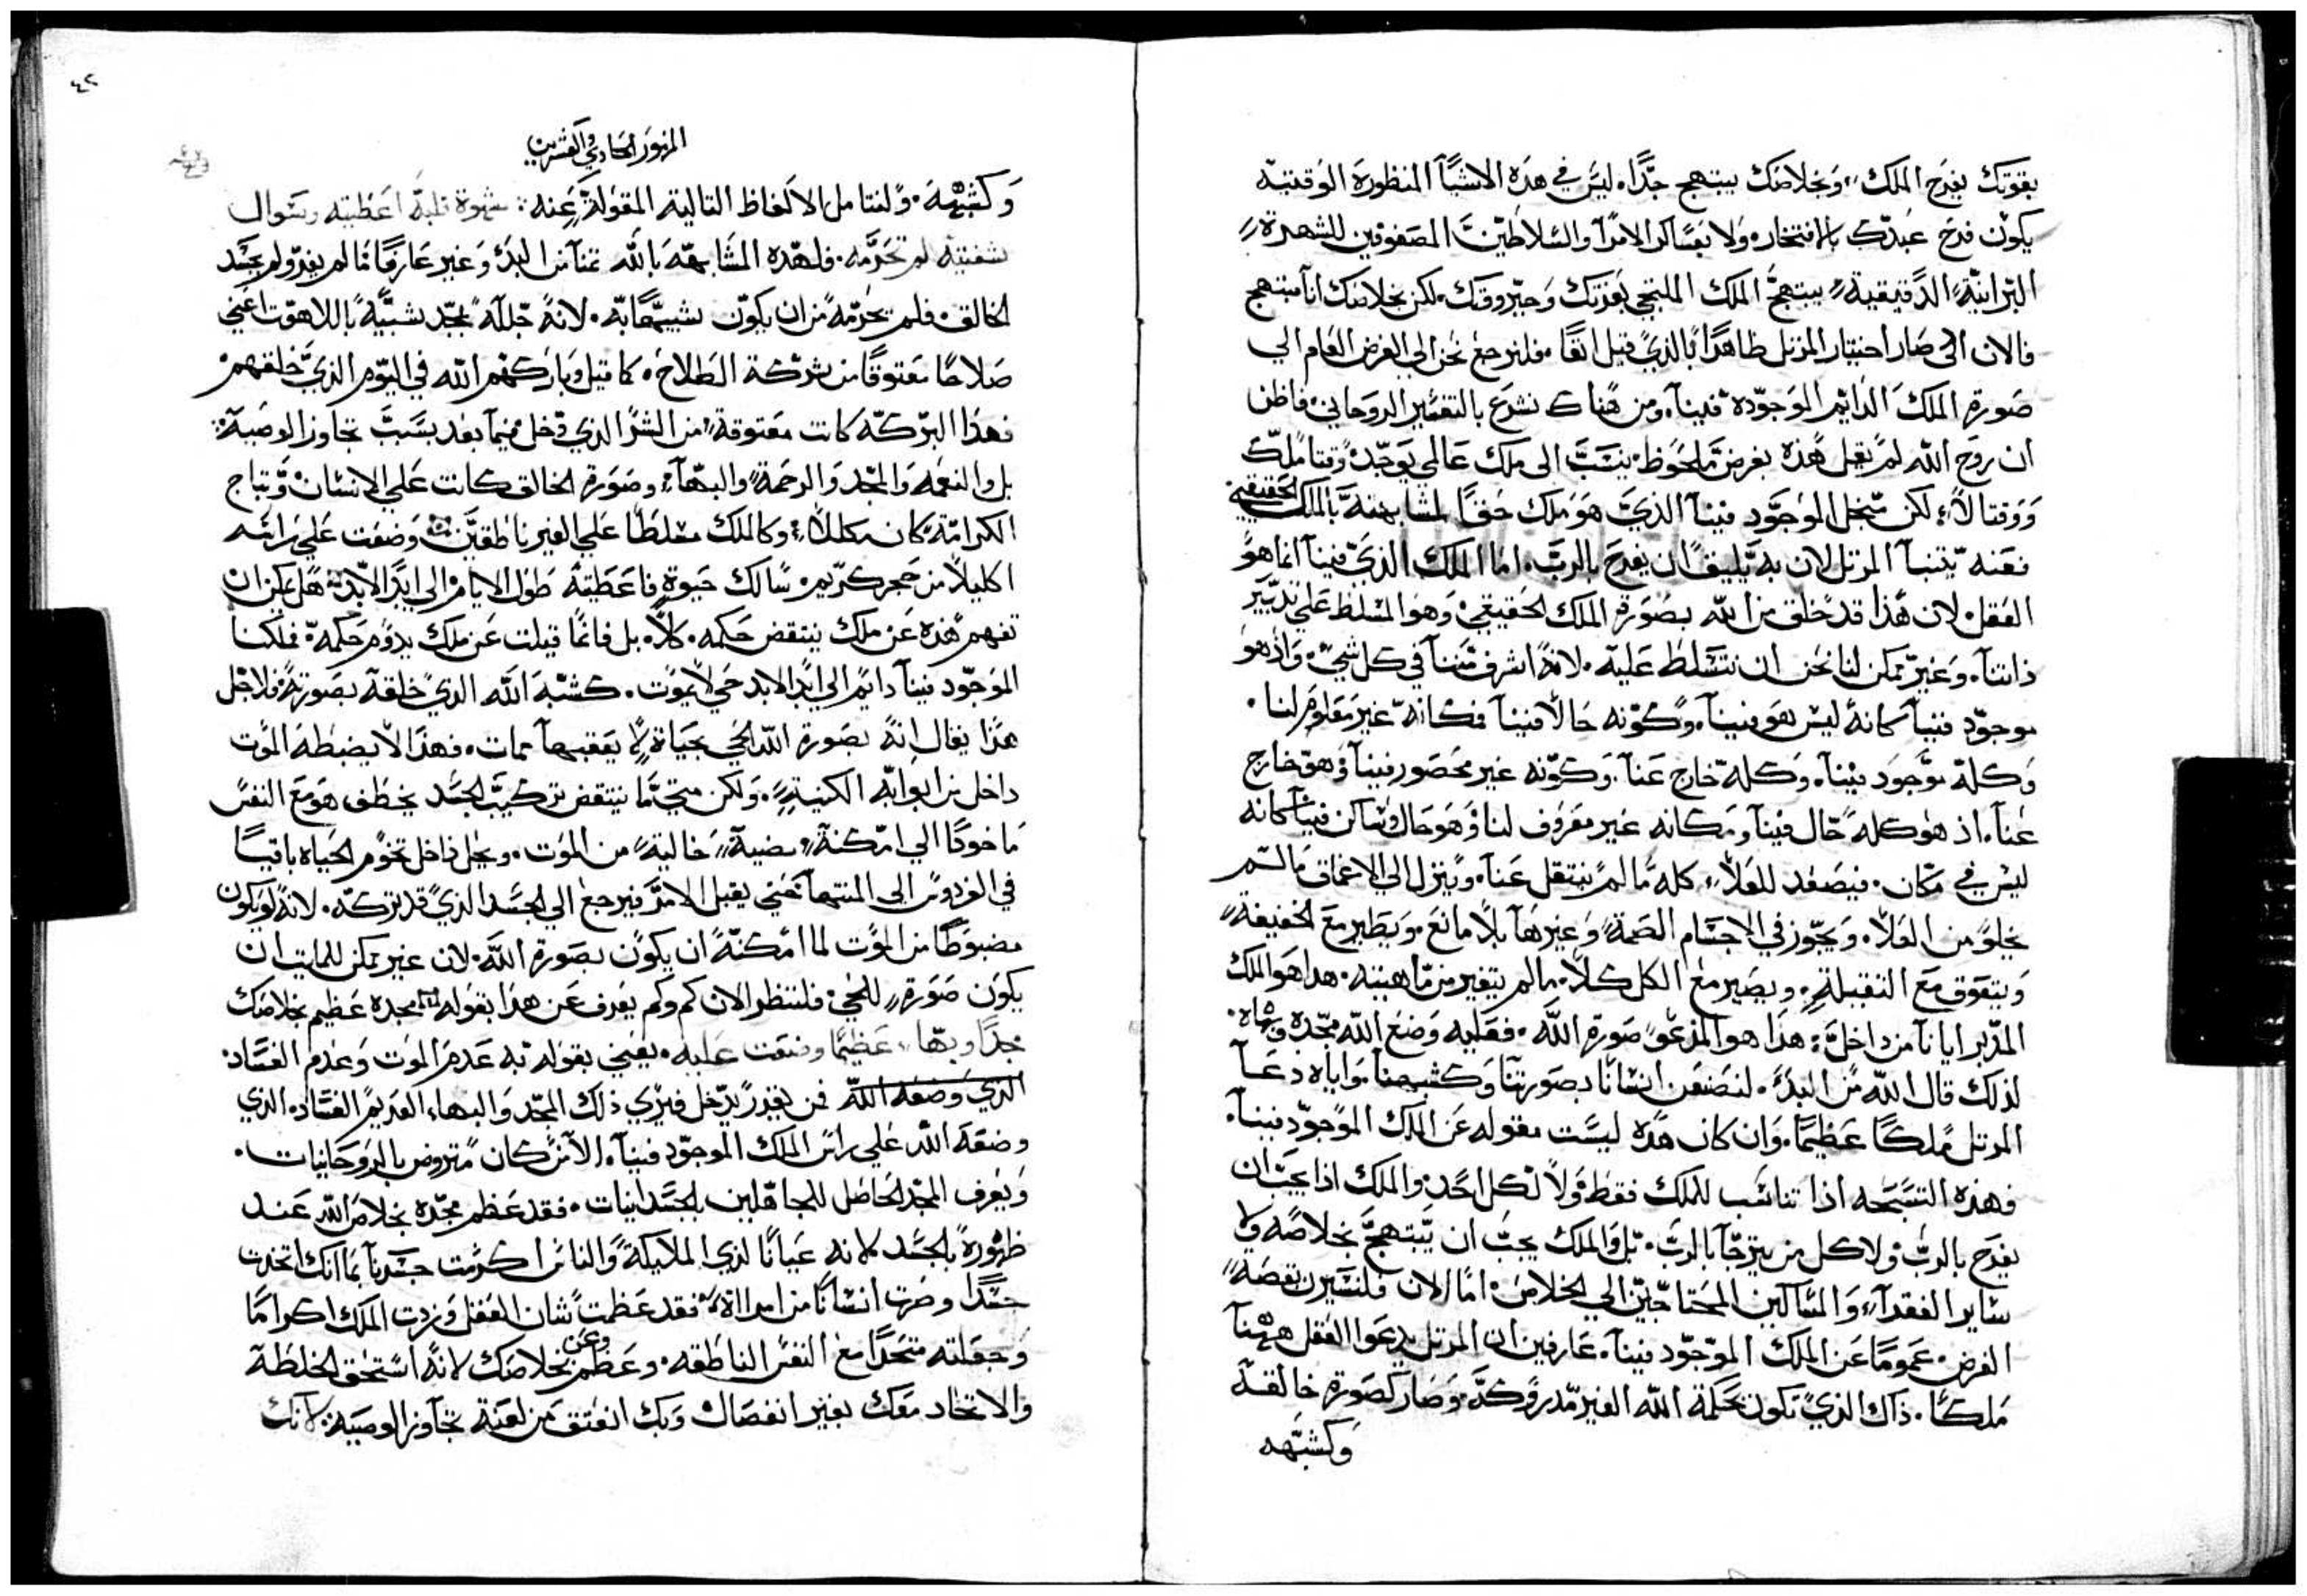 بقوتك يفرح الملك، وبخلاصك يبتهج جدًّا. ليس في هذه الاشيآ المنظورة الوقتية
يكون فرح عبدك بالافتخار. ولا بعساكر الامرآ والسلاطين المصفوفين للشهرة
البرانية الدقيقية يبتهج الملك الملتجي بعزتك وجبروتك. لكن بخلاصك انا مبتهج
فالان اذ صار اختيار المرتل ظاهرًا بالذي قيل انفًا. فلنرجع نحن الى الغرض العام الى
صورة الملك الدايم الموجوده فينا. ومن هناك نشرع بالتفسير الروحاني. فاظن
ان روح الله لم يقل هذه بغرض ملحوظ ينسب الى ملك عالمي يوجد وقتا ملك
ووقتا لا، لكن سجل الموجود فينا الذي هو ملك حقًا لمشابهته بالملك الحقيقي
فعنه يتنبا المرتل لان به يليق ان يفرح بالرب. اما الملك الذي فينا انما هو
العقل. لان هذا قد خلق من الله بصورة الملك الحقيقي. وهو المسلط على تدبير
ذاتنا. وغير ممكن لنا نحن ان نتسلط عليه. لانه اشرف مننا في كل شي. واذ هو
موجود فينا كانه ليس هو فينا. وكونه حالا فينا فكانه غير معلوم لنا.
وكله موجود فينا. وكله خارج عنا. وكونه غير محصور فينا وهو خارج
عنا. اذ هو كله حال فينا ومكانه غير معروف لنا وهو حال وساكن فينا كانه
ليس في مكان. فيصعد للعلا كله ما لم ينتقل عنا. وينزل الى الاعماق ما لم
يخلو من العلا. ويجوز في الاجسام الصمة وغيرها بلا مانع. ويطير مع الخفيفة
ويتعوق مع الثقيلة. ويصير مع الكل كلا. ما لم يتغير من ماهيته. هذا هو الملك
المدبر ايانا من داخل. هذا هو المدعو صورة الله. فعليه وضع الله مجده وبهاه.
لذلك قال الله من البدء. لنصنعن انسانًا بصورتنا وكشبهنا. واياه دعا
المرتل ملكًا عظيمًا. وان كان هذه ليست مقوله عن الملك الموجود فينا.
فهذه التسبحه اذا تناسب للملك فقط ولا لكل احد. والملك اذا يجب ان
يفرح بالرب ولا كل من يترجا بالرب. بل والملك يجب ان يبتهج بخلاصه ولا
ساير الفقرآ والمساكين المحتاجين الى الخلاص. اما الان فلنسيرن بقصة
الغرض. عمومًا عن الملك الموجود فينا. عارفين ان المرتل يدعوا العقل ههنا
ملكًا. ذاك الذي تكون بحكمة الله الغير مدروكة. وصار كصورة خالقه
وكشبهه
٤٢
المزمور الحادي والعشرين
وكشبهه. ولنتامل الالفاظ التالية المقولة عنه: شهوة قلبه اعطيته وسوال
شفتيه لم تحرمه. فلهذه المشابهة بالله تمنا من البدء وغير عارفًا ما لم يفز ولم يحسد
الخالق. فلم يحرمه من ان يكون شبيهًا به. لانه جلله بمجد شبيه باللاهوت اعني
صلاحًا معتوقًا من شركة الطلاح. كما قيل وباركهم الله في اليوم الذي خلقهم
فهذا البركه كانت معتوقة من الشر الذي دخل فيما بعد بسبب تجاوز الوصية:
بل والنعمه والمجد والرحمة والبهآ. وصورة الخالق كانت على الانسان وبتاج
الكرامة كان مكللا. وكالملك مسلطا على الغير ناطقين وضعت على راسه
اكليلا من حجر كريم. سالك حيوة فاعطيته طول الايام الى ابد الابد. هل يمكن ان
تفهم هذه عن ملك ينتقض حكمه. كلا. بل فانما قيلت عن ملك يدوم حكمه. فملكنا
الموجود فينا دايم الى ابد الابد حي لا يموت. كشبه الله الذي خلقه بصورته. فلاجل
هذا يقال انه بصورة الله الحي بحياة لا يعقبها ممات. فهذا لا يضبطه الموت
داخل من ابوابه الكنية. ولكن متى ما ينتقض تركيب الجسد يخطف هو مع النفس
ماخوذًا الى امكنة مضية خالية من الموت. ويحل داخل تخوم الحياه باقيًا
في الفردوس الى المنتها حتى يقبل الامر فيرجع الى الجسد الذي قد تركه. لانه لو يكون
مضبوطًا من الموت لما امكنه ان يكون بصورة الله. لان غير ممكن للمايت ان
يكون صورة للحي. فلننظر الان كم وكم يعرف عن هذا بقوله مجده عظيم بخلاصك
مجدًا وبها عظيمًا وضعت عليه. يعني بقوله به عدم الموت وعدم الفساد
الذي وضعه الله فمن يقدر يدخل فيرى ذلك المجد والبهاء العديم الفساد. الذي
وضعه الله على راس الملك الموجود فينا. الا من كان متروض بالروحانيات.
ويعرف المجد الحاصل للمجاهلين بالجسدانيات. فقد عظم مجده بخلاص الله عند
ظهوره بالجسد لانه عيانًا لذي الملايكة والناس اكرمت جسدنا بما انك اتخذت
جسدًا وصرت انسانًا من امراة فقد عظمت شان العقل وزدت الملك اكرامًا
وجعلته متحدًا مع النفس الناطقه. وعظم بخلاصك لانه استحق الخلطة
والاتحاد معك بغير انفصال وبك انعتق من لعنة تجاوز الوصية. لانك